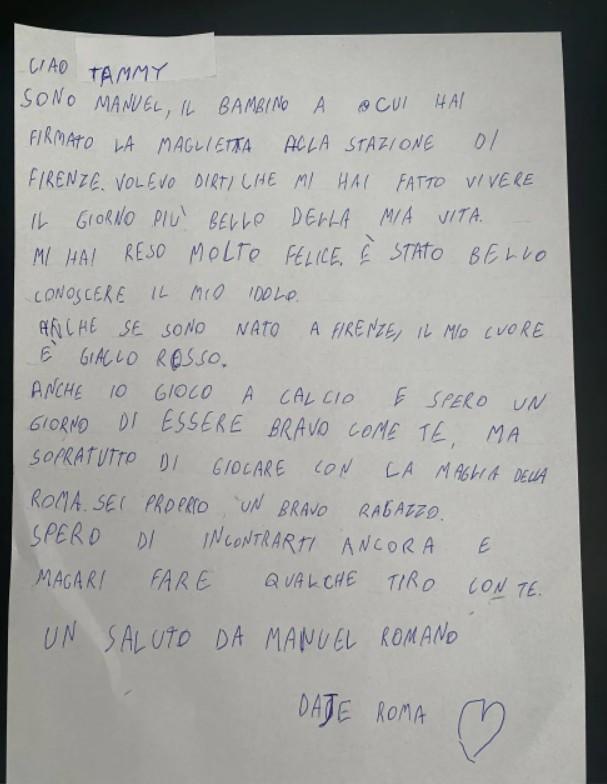 CIAO TAMMY
SONO MANUEL, IL BAMBINO A CUI HAI
FIRMATO LA MAGLIETTA ALLA STAZIONE DI
FIRENZE. VOLEVO DIRTI CHE MI HAI FATTO VIVERE
IL GIORNO PIÙ BELLO DELLA MIA VITA.
MI HAI RESO MOLTO FELICE. È STATO BELLO
CONOSCERE IL MIO IDOLO.
ANCHE SE SONO NATO A FIRENZE, IL MIO CUORE
È GIALLO ROSSO.
ANCHE IO GIOCO A CALCIO E SPERO UN
GIORNO DI ESSERE BRAVO COME TE, MA
SOPRATUTTO DI GIOCARE CON LA MAGLIA DELLA
ROMA. SEI PROPRIO UN BRAVO RAGAZZO.
SPERO DI INCONTRARTI ANCORA E
MAGARI FARE QUALCHE TIRO CON TE.
UN SALUTO DA MANUEL ROMANO
DAJE ROMA